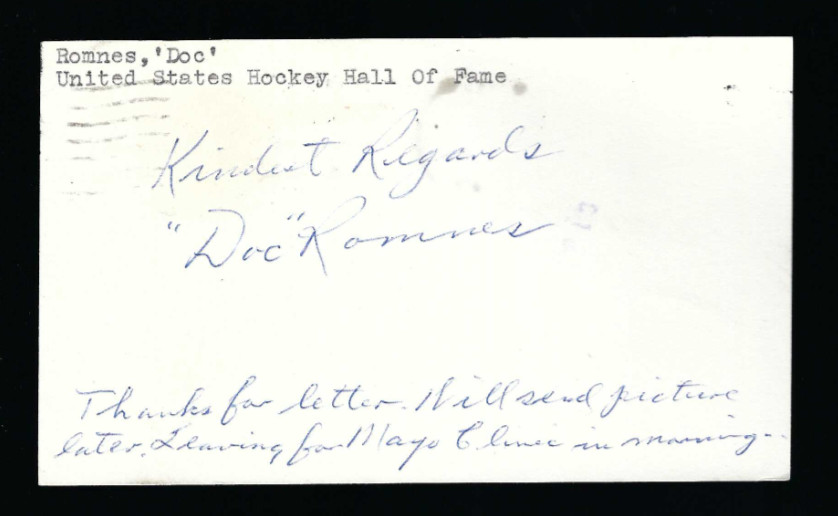 Romnes,'Doc'
United States Hockey Hall Of Fame
Kindest Regards
"Doc" Romnes
Thanks for letter. Will send picture
later. Leaving for Mayo Clinic in morning-